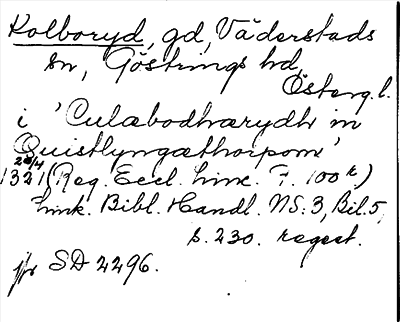 Kolboryd, gd, Väderstads
sn, Göstrings hd,
Österg.l.
i 'Culæbodhærydh in
Quistlyngæthorpom'
28/4
1321 (Reg. Eccl. Linc. F. 100 r)
Link. Bibl. Handl. NS:3, Bil. 5,
s. 230. regest.
jfr SD 2296.